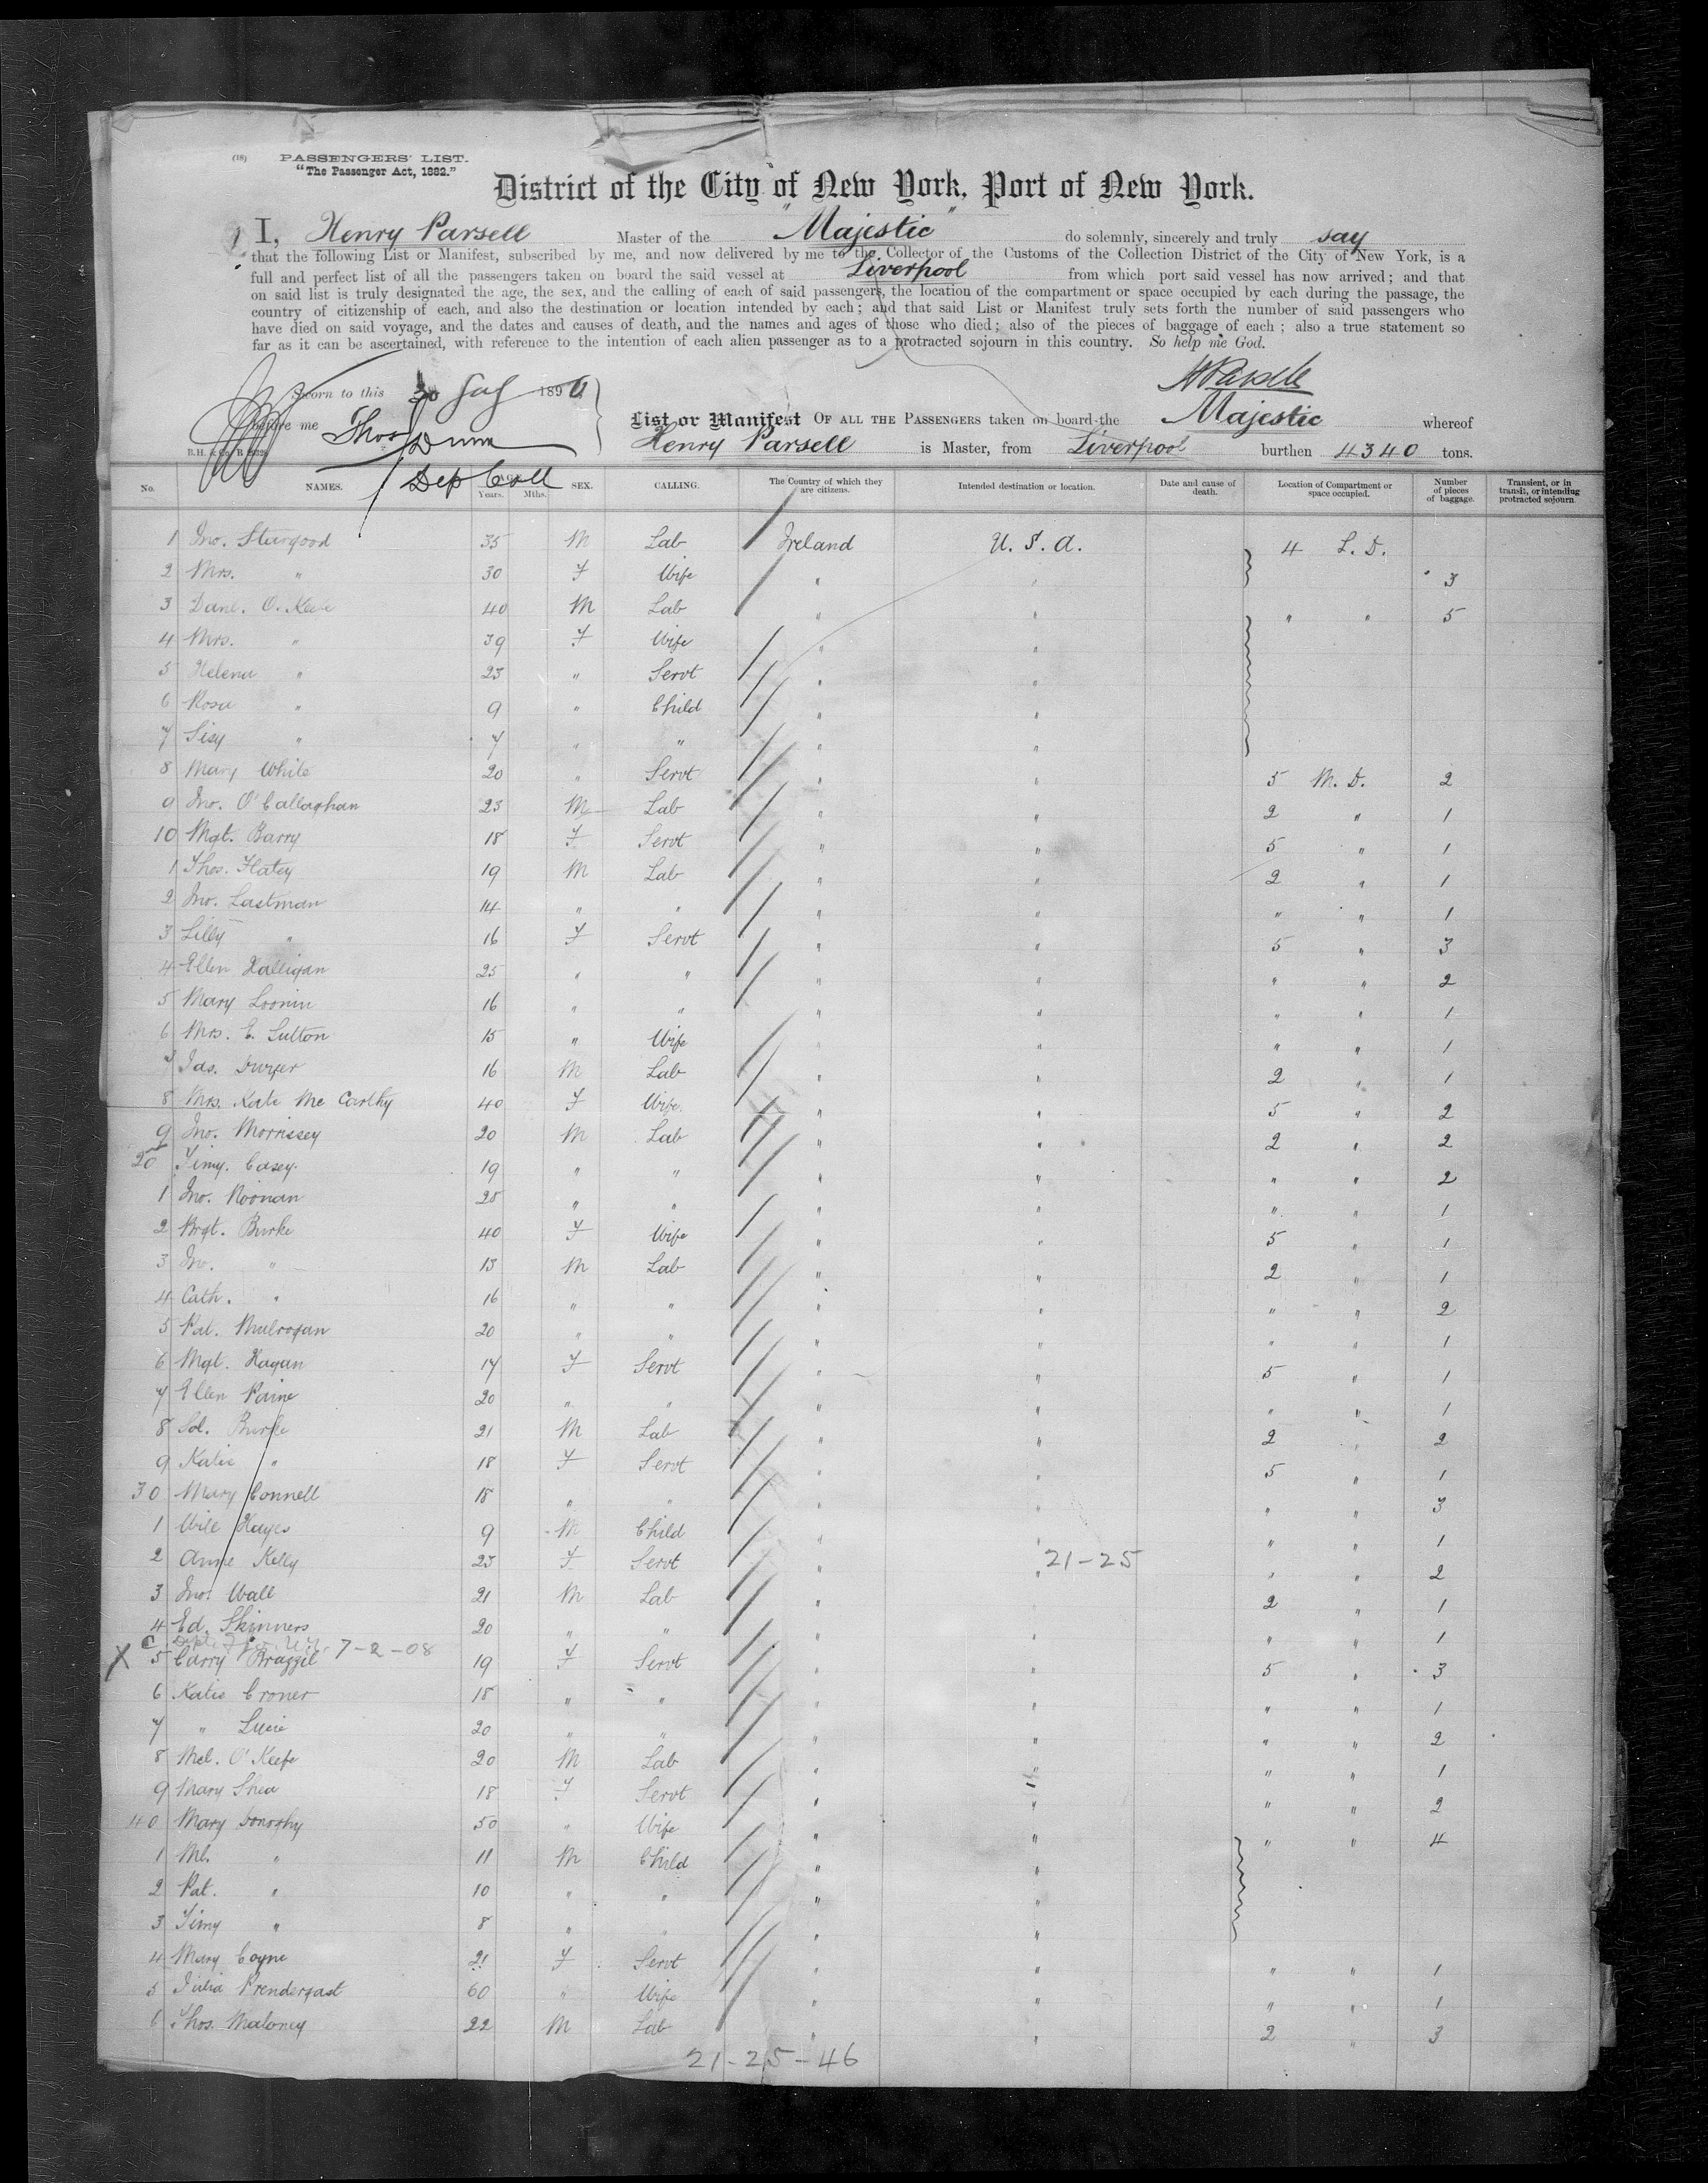 (18) PASSENGERS' LIST.
"The Passenger Act, 1882."
District of the City of New York, Port of New York.
I, Henry Parsell Master of the "Majestic" do solemnly, sincerely and truly say
that the following List or Manifest, subscribed by me, and now delivered by me to the Collector of the Customs of the Collection District of the City of New York, is a
full and perfect list of all the passengers taken on board the said vessel at Liverpool from which port said vessel has now arrived; and that
on said list is truly designated the age, the sex, and the calling of each of said passengers, the location of the compartment or space occupied by each during the passage, the
country of citizenship of each, and also the destination or location intended by each; and that said List or Manifest truly sets forth the number of said passengers who
have died on said voyage, and the dates and causes of death, and the names and ages of those who died; also of the pieces of baggage of each; also a true statement so
far as it can be ascertained, with reference to the intention of each alien passenger as to a protracted sojourn in this country. So help me God.
HParsell
Sworn to this 30 July 189
before me Thos Dunn
Dep Coll
B.H. & Co.
List or Manifest OF ALL THE PASSENGERS taken on board the Majestic whereof
Henry Parsell is Master, from Liverpool burthen 4340 tons.
No. NAMES. Years. Mths. SEX. CALLING. The Country of which they are citizens. Intended destination or location. Date and cause of death. Location of Compartment or space occupied. Number of pieces of baggage. Transient, or in transit, or intending protracted sojourn.
1 Jno. Sturgood 35 M Lab Ireland U.S.A. 4 L.D.
2 Mrs. " 30 F Wife " " 3
3 Danl. O'Keefe 40 M Lab " " " " 5
4 Mrs. " 39 F Wife " "
5 Helena " 23 " Servt " "
6 Rosa " 9 " Child " "
7 Sisy " 7 " " " "
8 Mary White 20 " Servt " " 5 M.D. 2
9 Jno. O'Callaghan 23 M Lab " " 2 " 1
10 Mgt. Barry 18 F Servt " " 5 " 1
1 Thos. Flatey 19 M Lab " " 2 " 1
2 Jno. Lastman 14 " " " " " " 1
3 Lilly " 16 F Servt " " 5 " 3
4 Ellen Halligan 25 " " " " " " 2
5 Mary Loonin 16 " " " " " " 1
6 Mrs. E. Sutton 15 " Wife " " " " 1
7 Jas. Dwyer 16 M Lab " " 2 " 1
8 Mrs. Kate McCarthy 40 F Wife " " 5 " 2
9 Jno. Morrissey 20 M Lab " " 2 " 2
20 Timy. Casey 19 " " " " " " 2
1 Jno. Noonan 28 " " " " " " 1
2 Brgt. Burke 40 F Wife " " 5 " 1
3 Jno. " 13 M Lab " " 2 " 1
4 Cath. " 16 " " " " " " 2
5 Pat. Mulrogan 20 " " " " " " 1
6 Mgt. Hagan 17 F Servt " " 5 " 1
7 Ellen Paine 20 " " " " " " 1
8 Sol. Burke 21 M Lab " " 2 " 2
9 Katie " 18 F Servt " " 5 " 1
30 Mary Connell 18 " " " " " " 3
1 Will Hayes 9 M Child " " " " 1
2 Anne Kelly 23 F Servt " " " " 2
21-25
3 Jno. Wall 21 M Lab " " 2 " 1
4 Ed. Skinners 20 " " " " " " 1
7-2-08
X 5 Carry Brazzil 19 F Servt " " 5 " 3
6 Katie Croner 18 " " " " " " 1
7 " Lucie 20 " " " " " " 2
8 Mcl. O'Keefe 20 M Lab " " " " 1
9 Mary Shea 18 F Servt " " " " 2
40 Mary Donoghy 50 " Wife " " " " 4
1 Ml. " 11 M Child " "
2 Pat. " 10 " " " "
3 Timy " 8 " " " "
4 Mary Coyne 21 F Servt " " " " 1
5 Julia Prendergast 60 " Wife " " " " 1
6 Thos. Maloney 22 M Lab " " 2 " 3
21-25-46